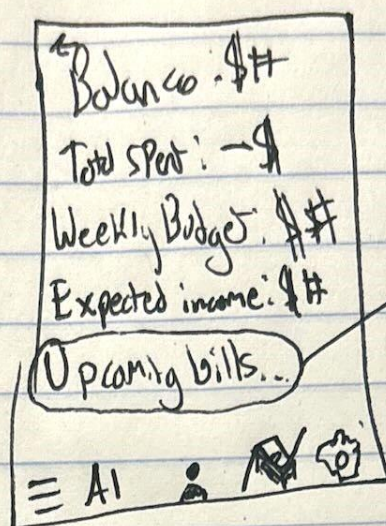 Balance: $#
Total spent: -$
Weekly Budget: $#
Expected income: $#
Upcoming bills...
AI